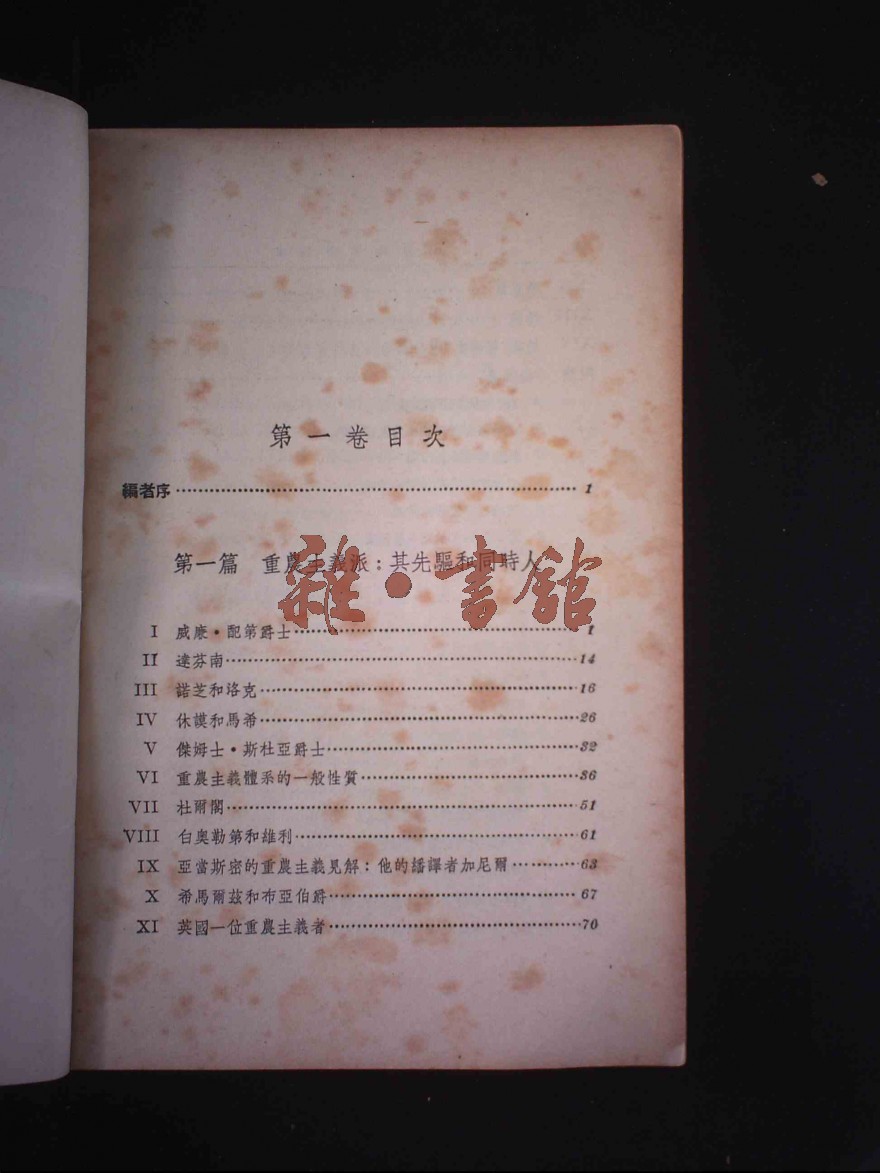 第一卷目次
編者序 1
第一篇 重農主義派：其先驅和同時人
雜·書館
I 威廉·配第爵士 1
II 達芬南 14
III 諾芝和洛克 16
IV 休謨和馬希 26
V 傑姆士·斯杜亞爵士 32
VI 重農主義體系的一般性質 36
VII 杜爾閣 51
VIII 白奧勒第和維利 61
IX 亞當斯密的重農主義見解：他的繙譯者加尼爾 63
X 希馬爾茲和布亞伯爵 67
XI 英國一位重農主義者 70